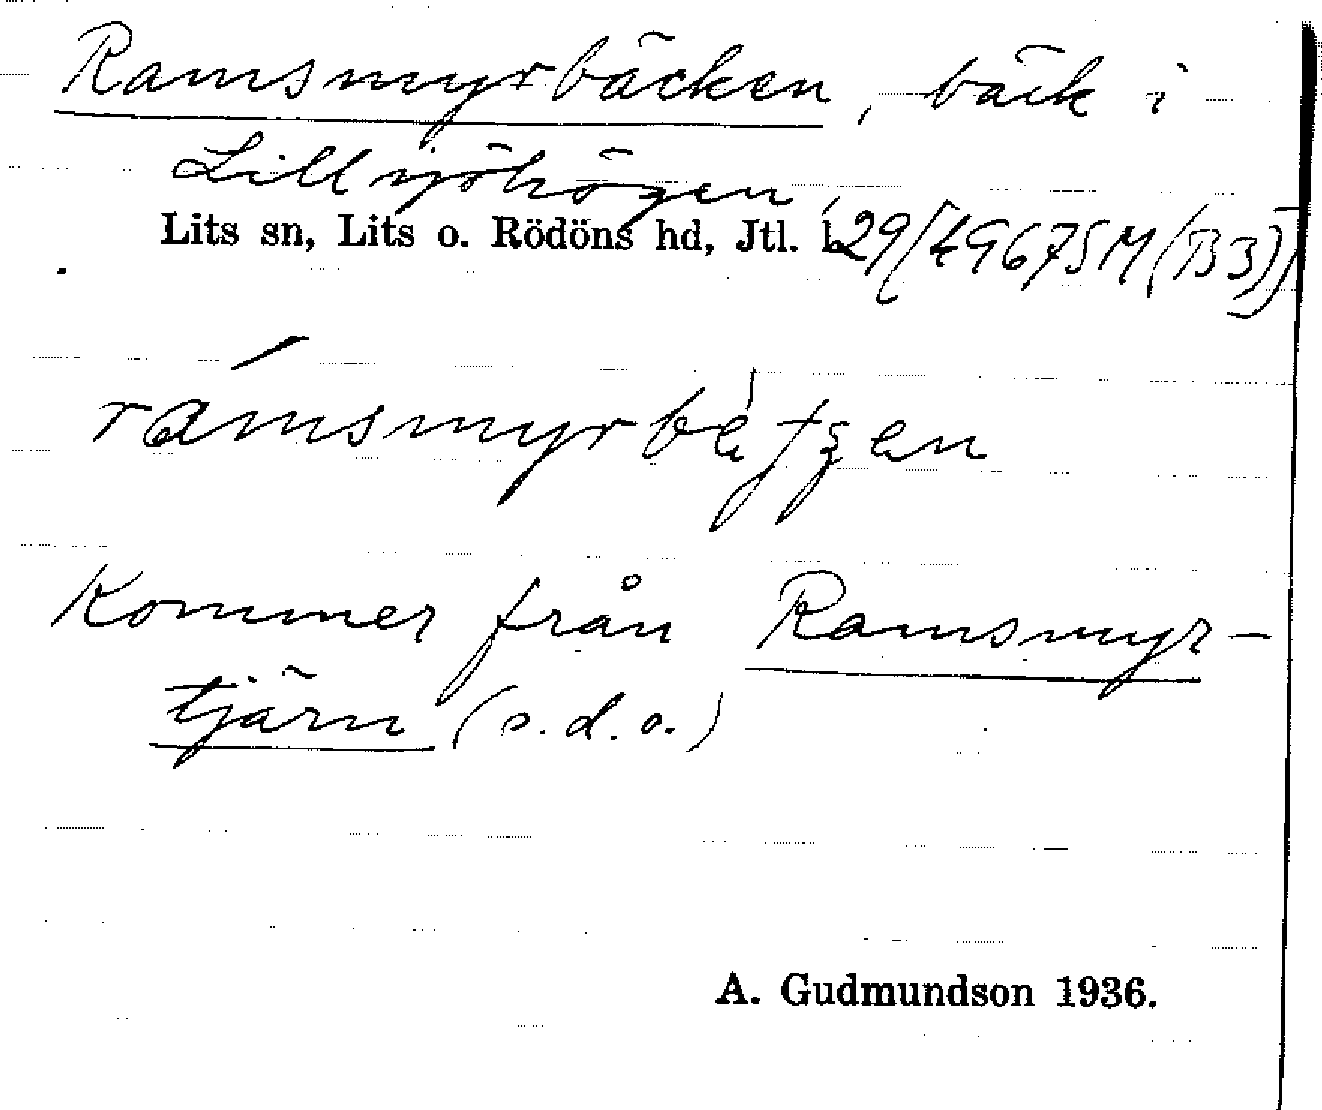 Ramsmyrbäcken, bäck i
Lillsjöhögen,
Lits sn, Lits o. Rödöns hd, Jtl. l.
rámsmyr
Kommer från Ramsmyr-
tjärn (s.d.o.)
A. Gudmundson 1936.